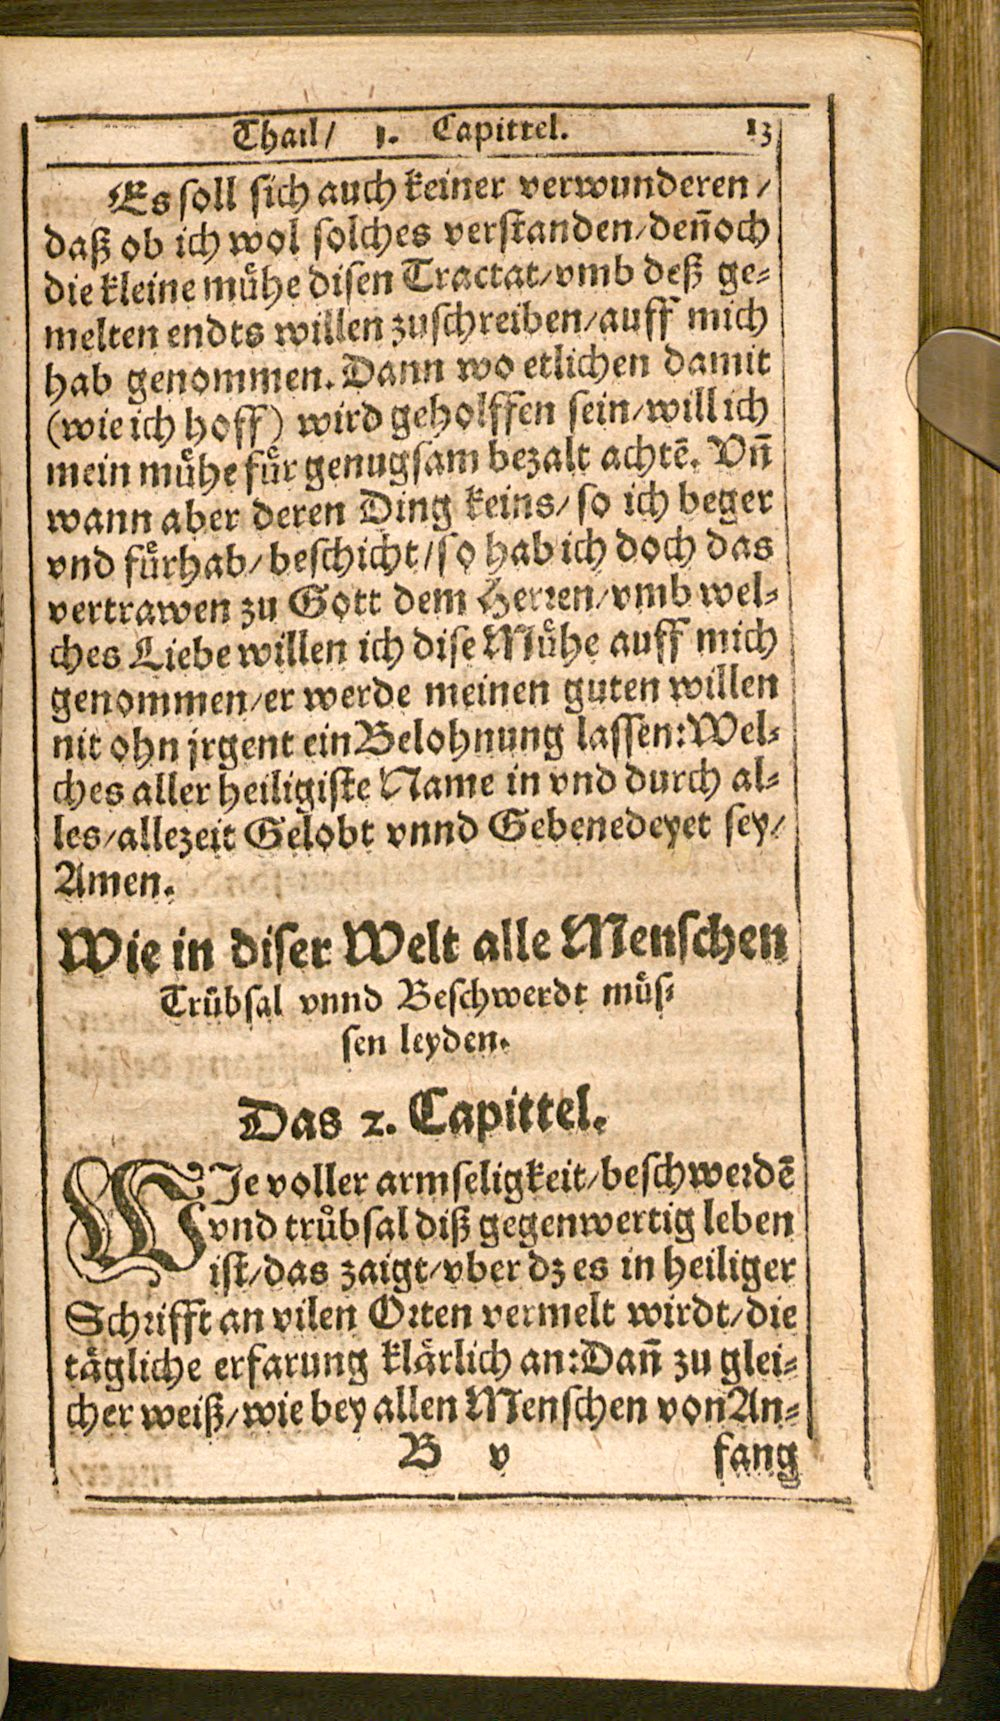 Thail/ 1. Capittel. 13
Es soll sich auch keiner verwunderen/
daß ob ich wol solches verstanden/den̄och
die kleine mühe disen Tractat/vmb deß ge=
melten endts willen zuschreiben/auff mich
hab genommen. Dann wo etlichen damit
(wie ich hoff) wird geholffen sein/will ich
mein mühe für genugsam bezalt achtē. Vn̄
wann aber deren Ding keins/ so ich beger
vnd fürhab/beschicht/so hab ich doch das
vertrawen zu Gott dem Herren/vmb wel=
ches Liebe willen ich dise Mühe auff mich
genommen/er werde meinen guten willen
nit ohn jrgent ein Belohnung lassen: Wel=
ches aller heiligiste Name in vnd durch al=
les/allezeit Gelobt vnnd Gebenedeyet sey/
Amen.
Wie in diser Welt alle Menschen
Trübsal vnnd Beschwerdt müs=
sen leyden.
Das 2. Capittel.
WIe voller armseligkeit/beschwerdē
vnd trůbsal diß gegenwertig leben
ist/das zaigt/vber dz es in heiliger
Schrifft an vilen Orten vermelt wirdt/die
tägliche erfarung klärlich an: Dan̄ zu glei=
cher weiß/wie bey allen Menschen von An=
B v fang